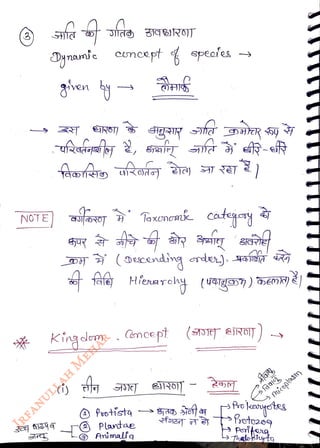 ③ जाति की गतिक अवधारणा
Dynamic concept of species →
given by → लैमार्क
→ इस धारणा के अनुसार जाति क्रमोत्तर रूप से
परिवर्तनशील है, अर्थात् जाति में धीरे-धीरे
विकासिक परिवर्तन होता जा रहा है।
NOTE वर्गीकरण में Taxonomic category को
ऊपर से नीचे की ओर अर्थात् अवरोही
क्रम में (Descending order) प्रदर्शित करने
की विधि Hierarchy (पदानुक्रम) कहलाता है।
Kingdom Concept (जगत धारणा) →
(i) तीन जगत धारणा - हैकल
① Protista → ऊतक श्रेणी का संगठन न हो
② Plantae
③ Animalia
→ Prokaryotes
→ Protozoa
→ Porifera
→ Thallophyta
IRFANULLAH MEHAR